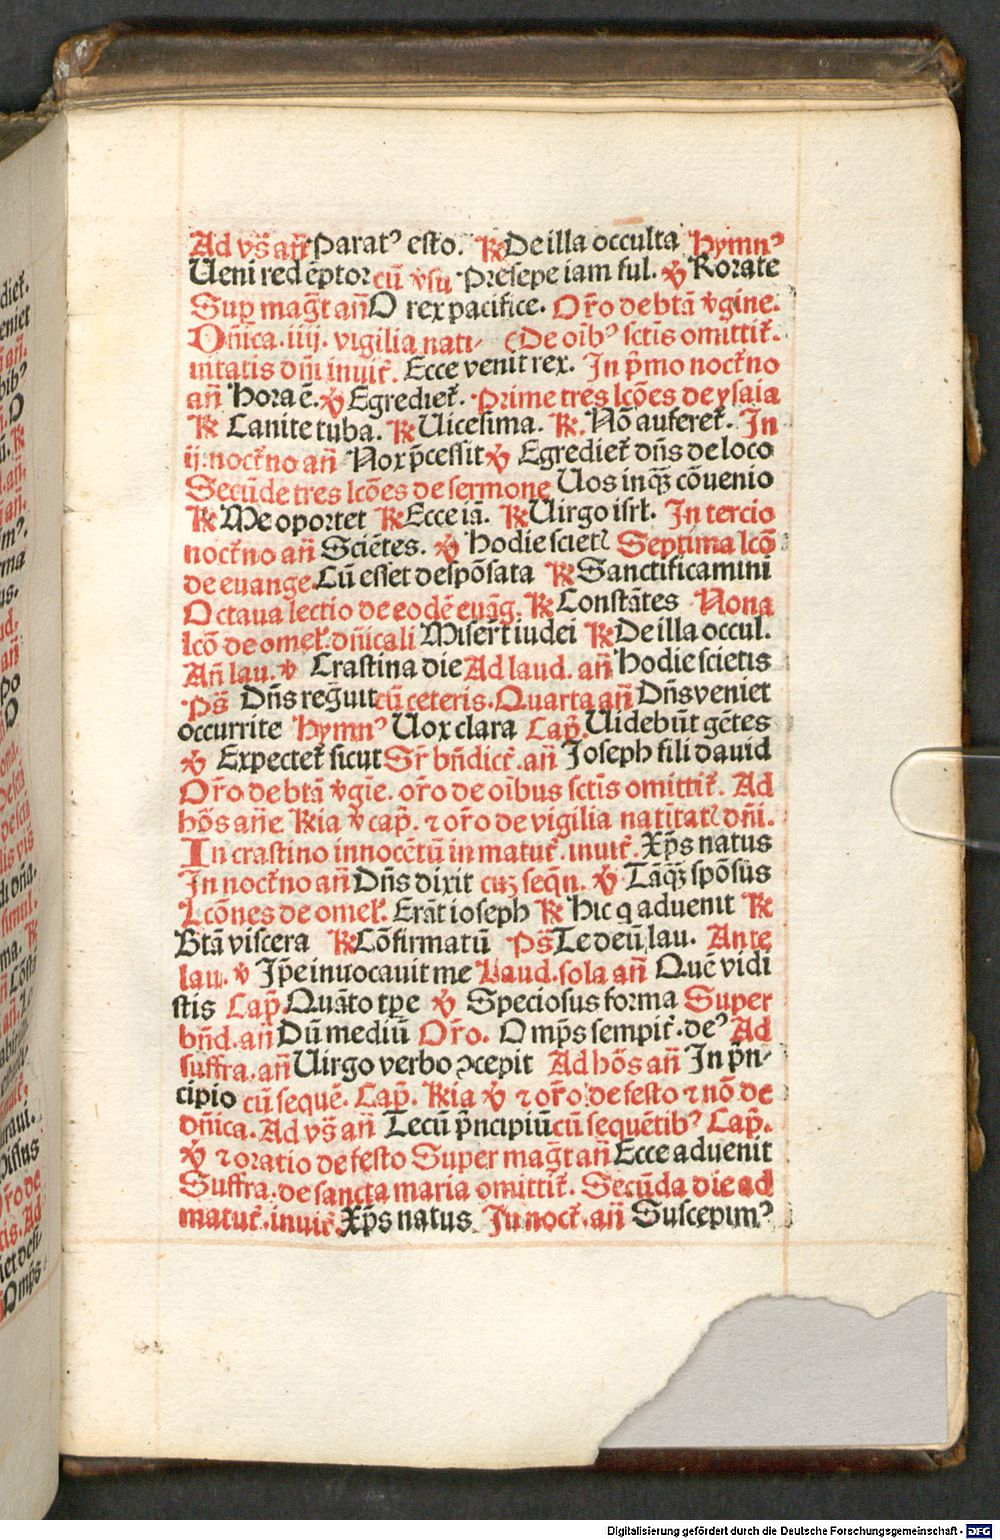 Ad vs̃ an̄ Paratꝰ esto. ℟ De illa occulta Hymnꝰ
Ueni redēptor cū v̄su Presepe iam ful. ℣ Rorate
Sup mag̃t an̄ O rex pacifice. Or̄o de btā v̄gine.
Dn̄ica .iiij. vigilia nati- (De oībꝰ sctis omittit̄.
uitatis dn̄i inuit̄. Ecce venit rex. In p̄mo noct̄no
an̄ Hora ē. ℣ Egrediet̄. Prime tres lcōes de ysaia
℟ Canite tuba. ℟ Uicesima. ℟. Nō auferet̄. In
ij. noct̄no an̄ Nox p̄cessit ℣ Egrediet̄ dn̄s de loco
Secūde tres lcōes de sermone Uos inqꝫ cōuenio
℟ Me oportet ℟ Ecce iā. ℟ Uirgo isrl̄. In tercio
noct̄no an̄ Sciētes. ℣ Hodie scietꝭ Septima lcō
de euange. Cū esset despōsata ℟ Sanctificamini
Octaua lectio de eodē euāg. ℟ Constātes Nona
lcō de omel̄. dn̄icali Misert̄ iudei ℟ De illa occul.
An̄ lau. ℣ Crastina die Ad laud. an̄ Hodie scietis
Ps̄ Dn̄s reg̃uit cū ceteris. Quarta an̄ Dn̄s veniet
occurrite Hymnꝰ Uox clara Cap̄. Uidebūt gētes
℣ Expectet̄ sicut Sr̄ bn̄dict̄. an̄ Joseph fili dauid
Or̄o de btā v̄gīe. or̄o de oībus sctīs omittit̄. Ad
hōs an̄e ℟ia ℣ cap̄. ⁊ or̄o de vigilia natītatꝭ dn̄i.
In crastino innocētū in matut̄. inuit̄. Xp̄s natus
In noct̄no an̄ Dn̄s dixit cuꝫ seqn̄. ℣ Tāqꝫ spōsus
Lcōnes de omel̄. Erāt ioseph ℟ Hic q aduenit ℟
Btā viscera ℟ Cōfirmatū Ps̄ Te deū lau. Ante
lau. ℣ Ip̄e inuocauit me Laud. sola an̄ Quē vidi
stis Cap̄ Quāto tp̄e ℣ Speciosus forma Super
bn̄d. an̄ Dū mediū Or̄o. Omp̄s sempit̄. deꝰ Ad
suffra. an̄ Uirgo verbo ꝯcepit Ad hōs an̄ In p̄n-
cipio cū sequē. Cap̄. ℟ia ℣ ⁊ or̄o de festo ⁊ nō de
dn̄ica. Ad vs̃ an̄ Tecū p̄ncipiū cū sequētibꝰ Cap̄.
℣ ⁊ oratio de festo Super mag̃t an̄ Ecce aduenit
Suffra. de sancta maria omittit̄. Secūda die ad
matut̄. inuit̄. Xp̄s natus In noct̄. an̄ Suscepimꝰ
Digitalisierung gefördert durch die Deutsche Forschungsgemeinschaft - DFG